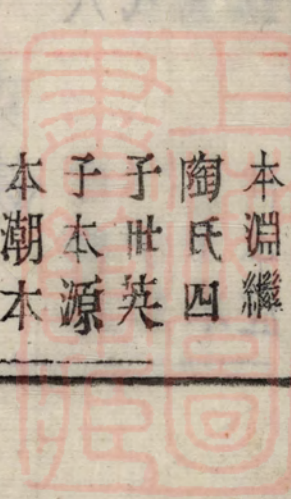 本淵繼
陶氏四
子世英
子本源
本潮本